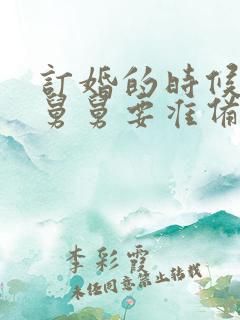 訂婚的時候
舅舅要准備
李彩霞
未经同意禁止转载